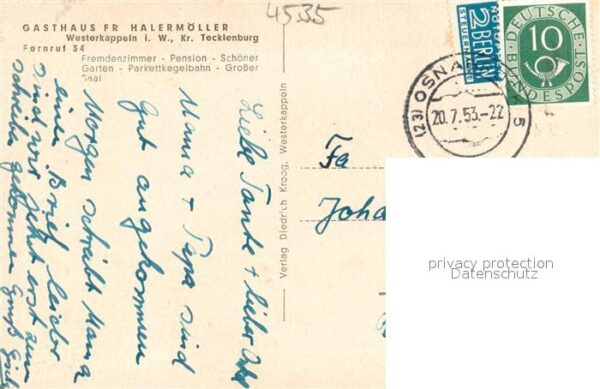 4535
GASTHAUS FR HALERMÖLLER
Westerkappeln i. W., Kr. Tecklenburg
Fernruf 34
Fremdenzimmer - Pension - Schöner
Garten - Parkettkegelbahn - Großer
Saal
Liebe Tante + lieber
Mama + Papa sind
gut angekommen
Morgen schreibt Mama
einen Brief leider
sind wir jetzt erst zum
schreiben gekommen Gruß
Verlag Diedrich Kroog, Westerkappeln
Fa
Joha
NOTOPFER
2 BERLIN
STEUERMARKE
DEUTSCHE
BUNDESPOST
10
(23) OSNA
20.7.53.-22
5
privacy protection
Datenschutz